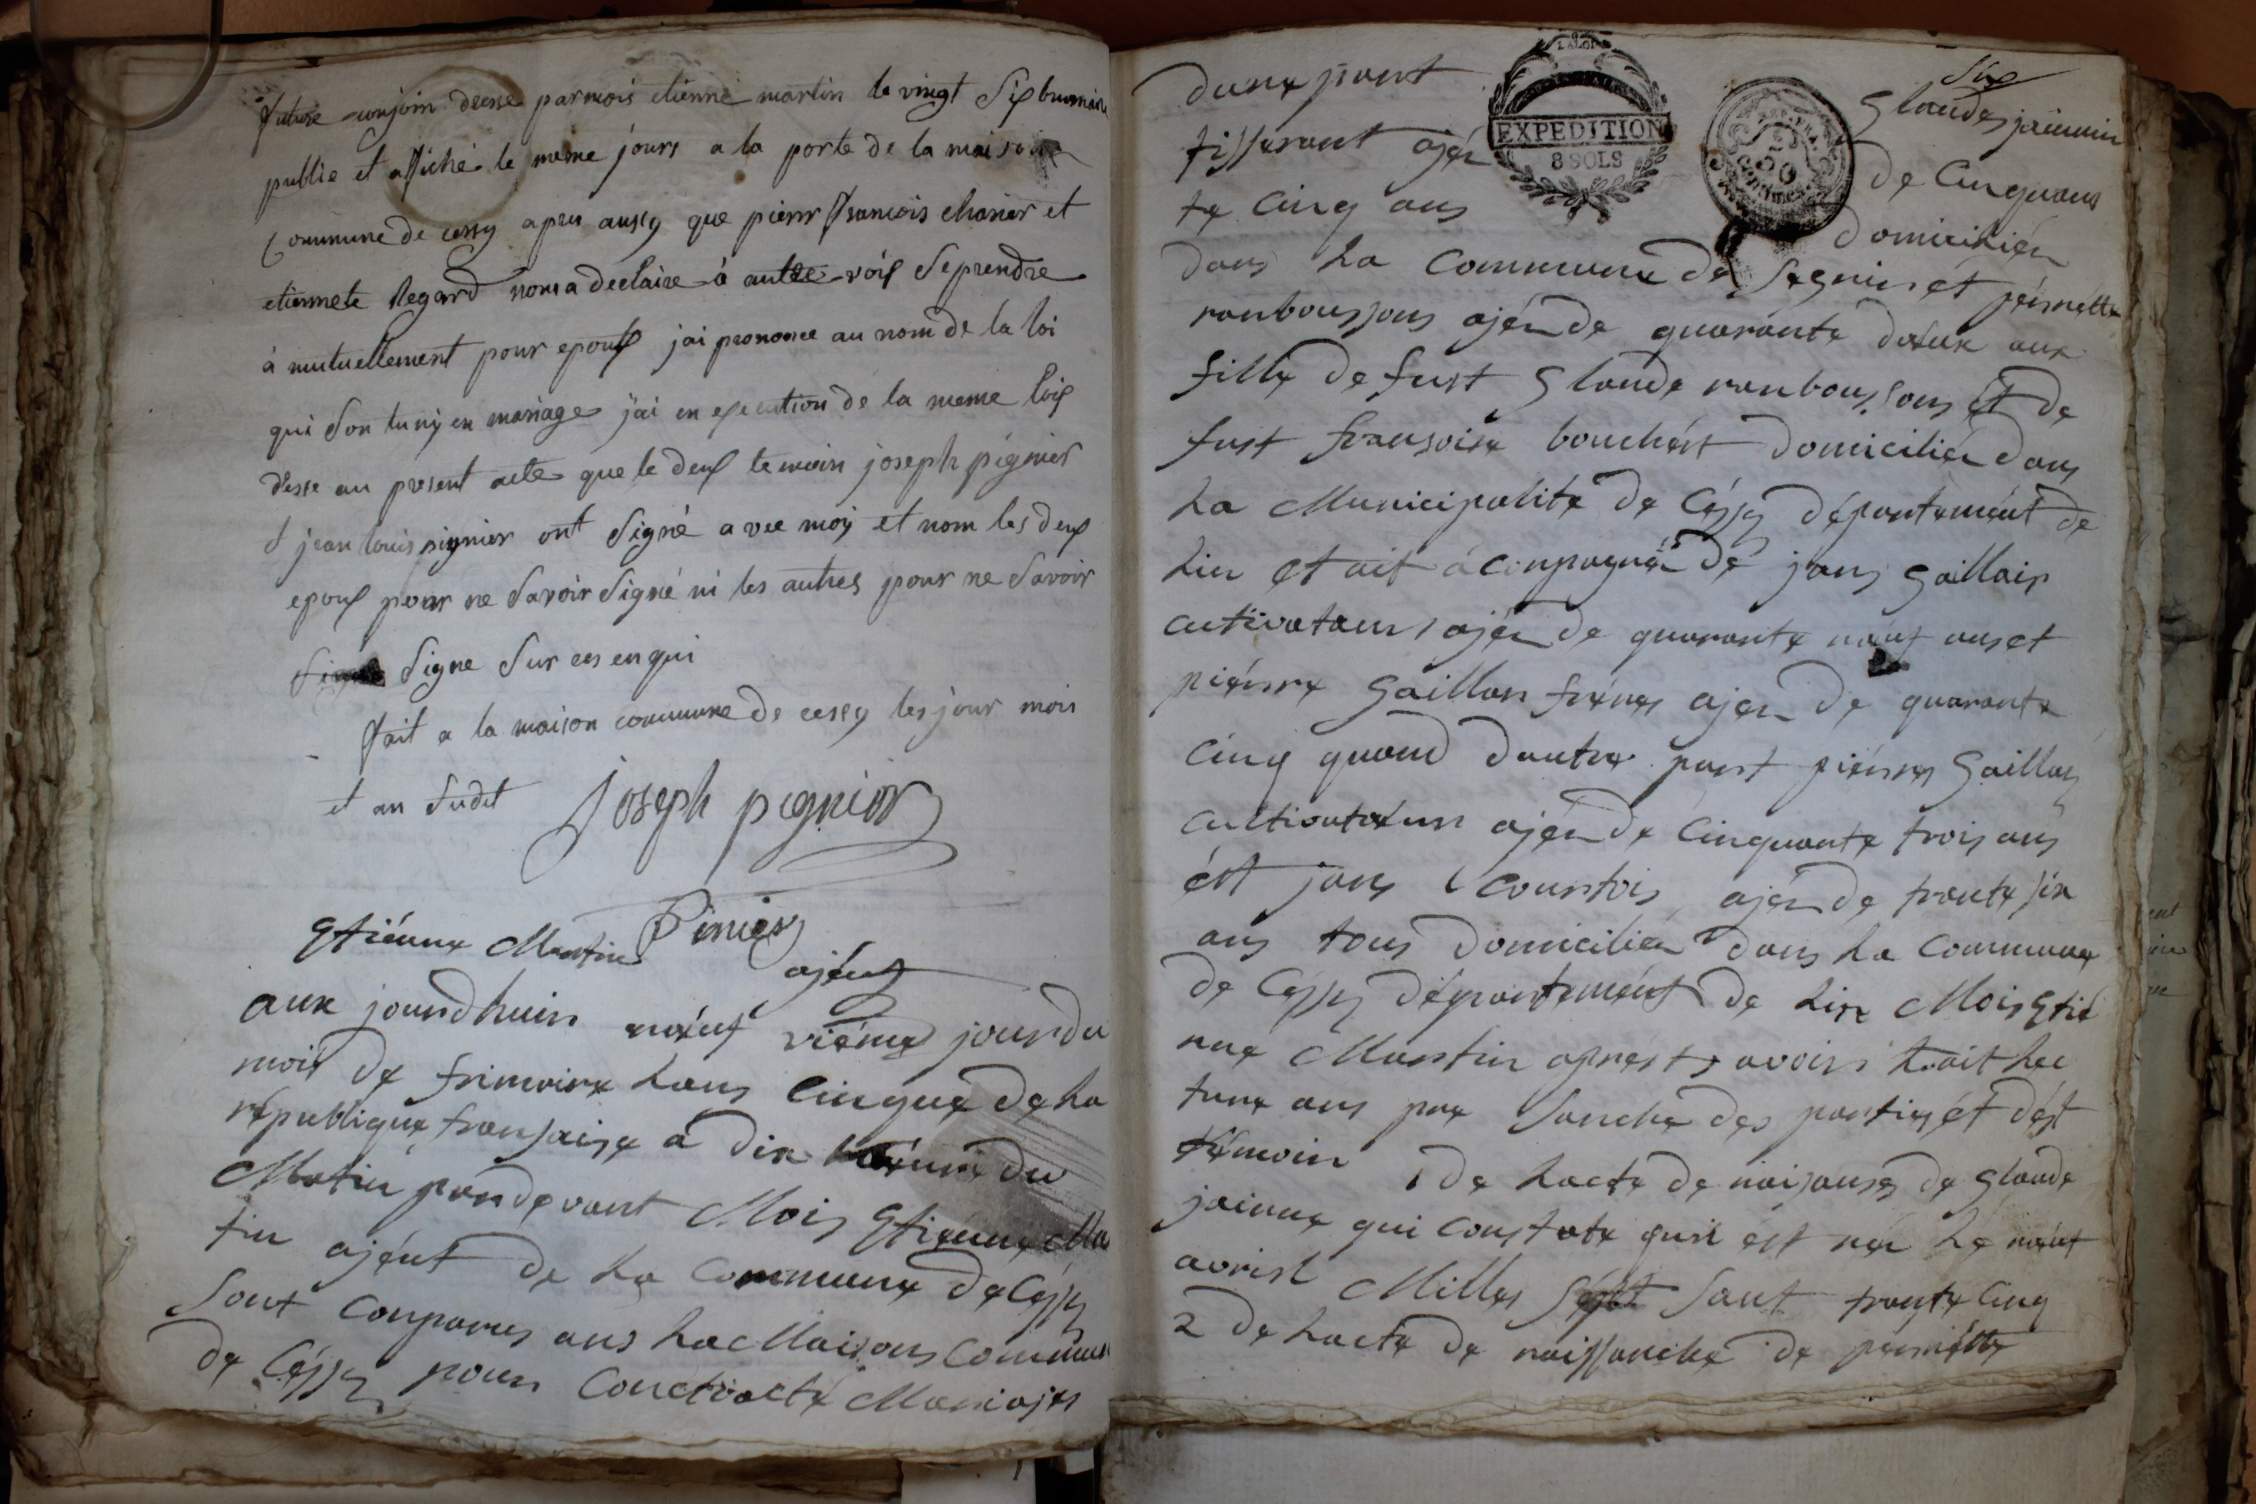 futuse conjoin desse parmois etienne martin le vingt Six brumaire
publie et affiché le meme jours a la porte de la maison
Commune de cessy apres aussy que pierr francois charier et
etiennete Regard nous a declaire à aute voix Se prendre
à mutuellement pour epoux jai prononce au nom de la loi
qui Son tuny en mariage j'ai en execution de la meme loix
desse au present acte que le deux temoin joseph pignier
& jean louis pignier ont Signé avec moy et nom les deux
epoux pour ne Savoir Signé ni les autres pour ne Savoir
Signe Sur ces en qui
fait a la maison commune de cessy les jour mois
et an Sudit joseph pignier
Pinier
Etiénne Martin ajént
aux jourdhuin nœuf viéme jour du
mois de frimaire Lans Cinque de La
république fransaise a dix du
Matin pardevant Mois Etiénne Mar
tin ajént de La Commune de Céssy
Sont Conparus ans La Maisons Commune
de Céssy pour Contracté Mariajes
dune part
Six
Glaudes jaiunin
EXPEDITION
8 SOLS
50
Centimes
tisserant ajér de Cinquans
te Cinq ans domiciliér
dans La Commune de Segnis et pérnétte
ranboussons ajér de quarante dœux ans
fille de fust Glaude ranboussons Et de
fust fransoise bouchért domiciliér dans
La Municipalité de Céssy département de
Lin et ait aconpagnér de jans Gaillais
cultivateur ajér de quarante nœuf ans et
piérre Gaillar fréres ajér de quarante
Cinq quand dautre part piérres Gaillar
cultivatœur ajér de Cinquante trois ans
ést jans Courtois ajér de trante six
ans tous domiciliér dans La Commune
de Céssy département de Lin Mois Etié
nne Martin aprést avoir Lait Lec
ture ans pre Sanche des partiés ét dést
témoin 1 de Lacte de naisanse de Glaude
jainne qui Constate quil ést nér Le nœuf
avrisl Milles Sépt Sant trante Cinq
2 de Lacte de naissanche de pernétte